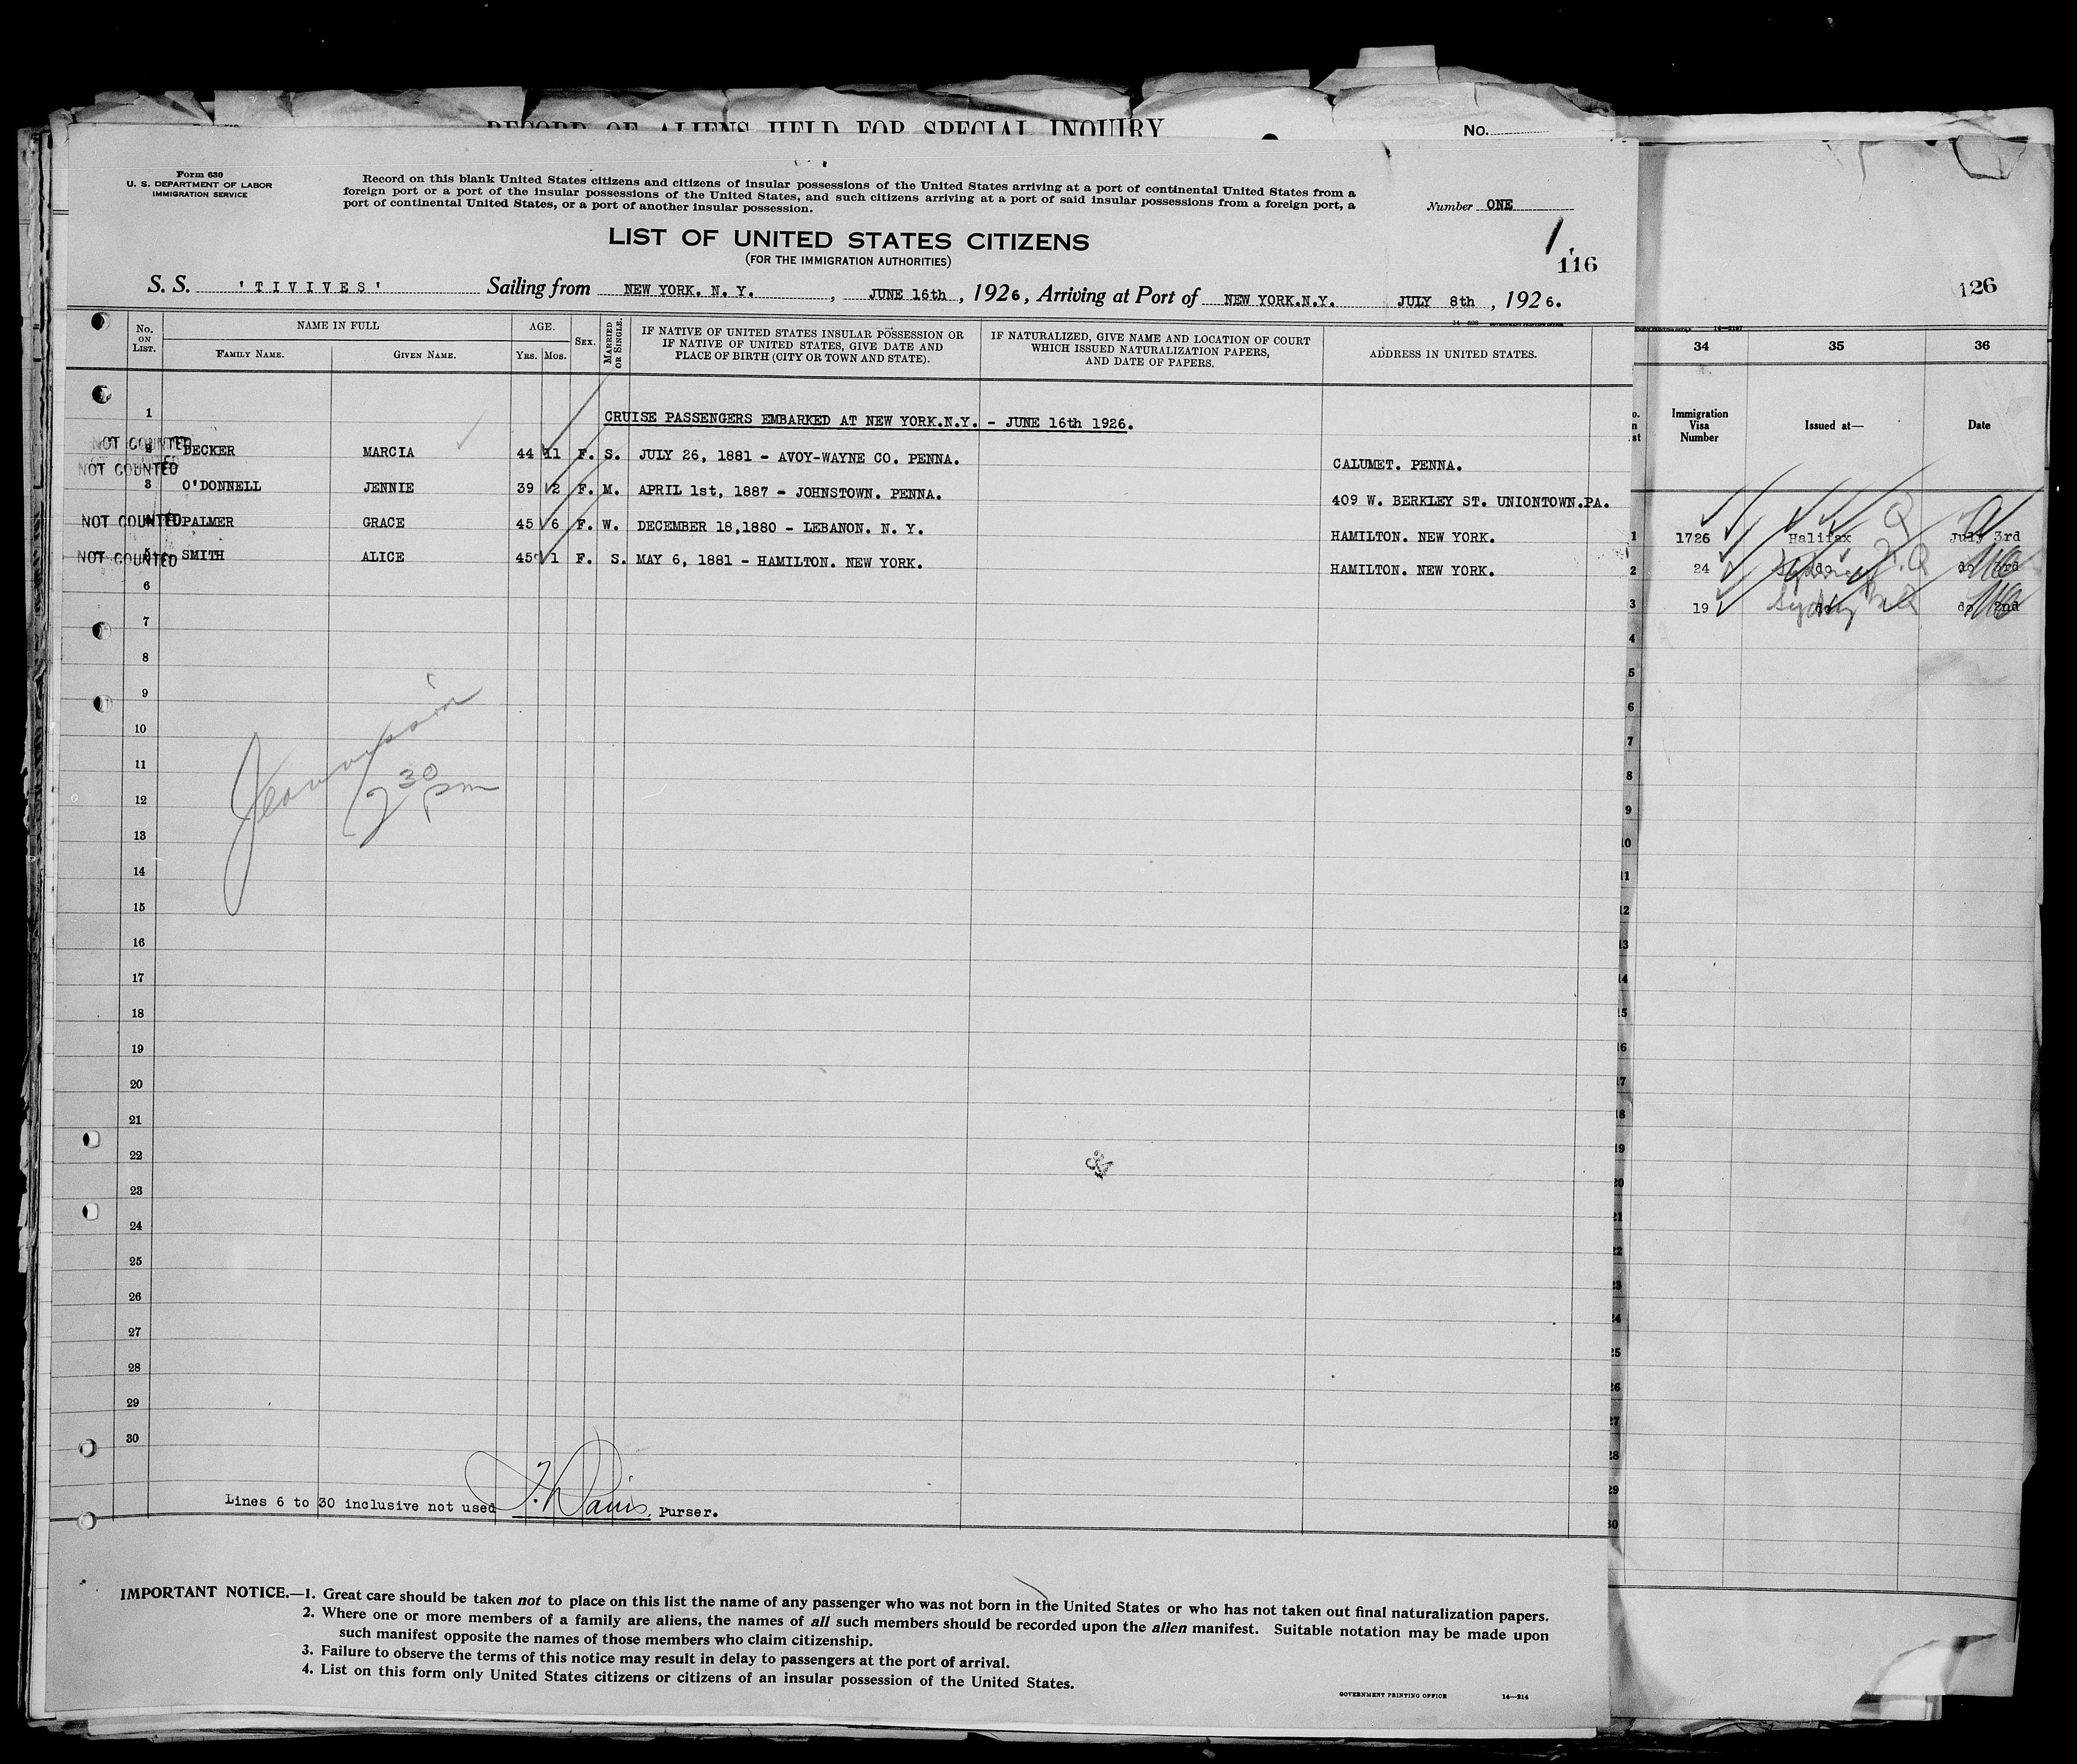 RECORD OF ALIENS HELD FOR SPECIAL INQUIRY
No.
Form 630
U. S. DEPARTMENT OF LABOR
IMMIGRATION SERVICE
Record on this blank United States citizens and citizens of insular possessions of the United States arriving at a port of continental United States from a
foreign port or a port of the insular possessions of the United States, and such citizens arriving at a port of said insular possessions from a foreign port, a
port of continental United States, or a port of another insular possession.
Number ONE
LIST OF UNITED STATES CITIZENS
(FOR THE IMMIGRATION AUTHORITIES)
1
116
S. S. 'TIVIVES' Sailing from NEW YORK. N. Y. , JUNE 16th , 1926, Arriving at Port of NEW YORK.N.Y. JULY 8th , 1926.
No. ON LIST.
NAME IN FULL
FAMILY NAME. GIVEN NAME.
AGE.
YRS. MOS.
SEX.
MARRIED OR SINGLE.
IF NATIVE OF UNITED STATES INSULAR POSSESSION OR
IF NATIVE OF UNITED STATES, GIVE DATE AND
PLACE OF BIRTH (CITY OR TOWN AND STATE).
IF NATURALIZED, GIVE NAME AND LOCATION OF COURT
WHICH ISSUED NATURALIZATION PAPERS,
AND DATE OF PAPERS.
ADDRESS IN UNITED STATES.
1 CRUISE PASSENGERS EMBARKED AT NEW YORK.N.Y. - JUNE 16th 1926.
NOT COUNTED 2 DECKER MARCIA 44 11 F. S. JULY 26, 1881 - AVOY-WAYNE CO. PENNA. CALUMET. PENNA.
NOT COUNTED 3 O'DONNELL JENNIE 39 2 F. M. APRIL 1st, 1887 - JOHNSTOWN. PENNA. 409 W. BERKLEY ST. UNIONTOWN.PA.
NOT COUNTED PALMER GRACE 45 6 F. W. DECEMBER 18,1880 - LEBANON. N. Y. HAMILTON. NEW YORK.
NOT COUNTED 5 SMITH ALICE 45 1 F. S. MAY 6, 1881 - HAMILTON. NEW YORK. HAMILTON. NEW YORK.
6
7
8
9
10
11
12
13
14
15
16
17
18
19
20
21
22
23
24
25
26
27
28
29
30
2 30 pm
Lines 6 to 30 inclusive not used F. Davis. Purser.
IMPORTANT NOTICE.—1. Great care should be taken not to place on this list the name of any passenger who was not born in the United States or who has not taken out final naturalization papers.
2. Where one or more members of a family are aliens, the names of all such members should be recorded upon the alien manifest. Suitable notation may be made upon
such manifest opposite the names of those members who claim citizenship.
3. Failure to observe the terms of this notice may result in delay to passengers at the port of arrival.
4. List on this form only United States citizens or citizens of an insular possession of the United States.
GOVERNMENT PRINTING OFFICE 14—214
126
34 35 36
Immigration
Visa
Number
Issued at—
Date
1 1726 Halifax July 3rd
2 24 do 3rd
3 19 Sydney do 2nd
4
5
6
7
8
9
10
11
12
13
14
15
16
17
18
19
20
21
22
23
24
25
26
27
28
29
30